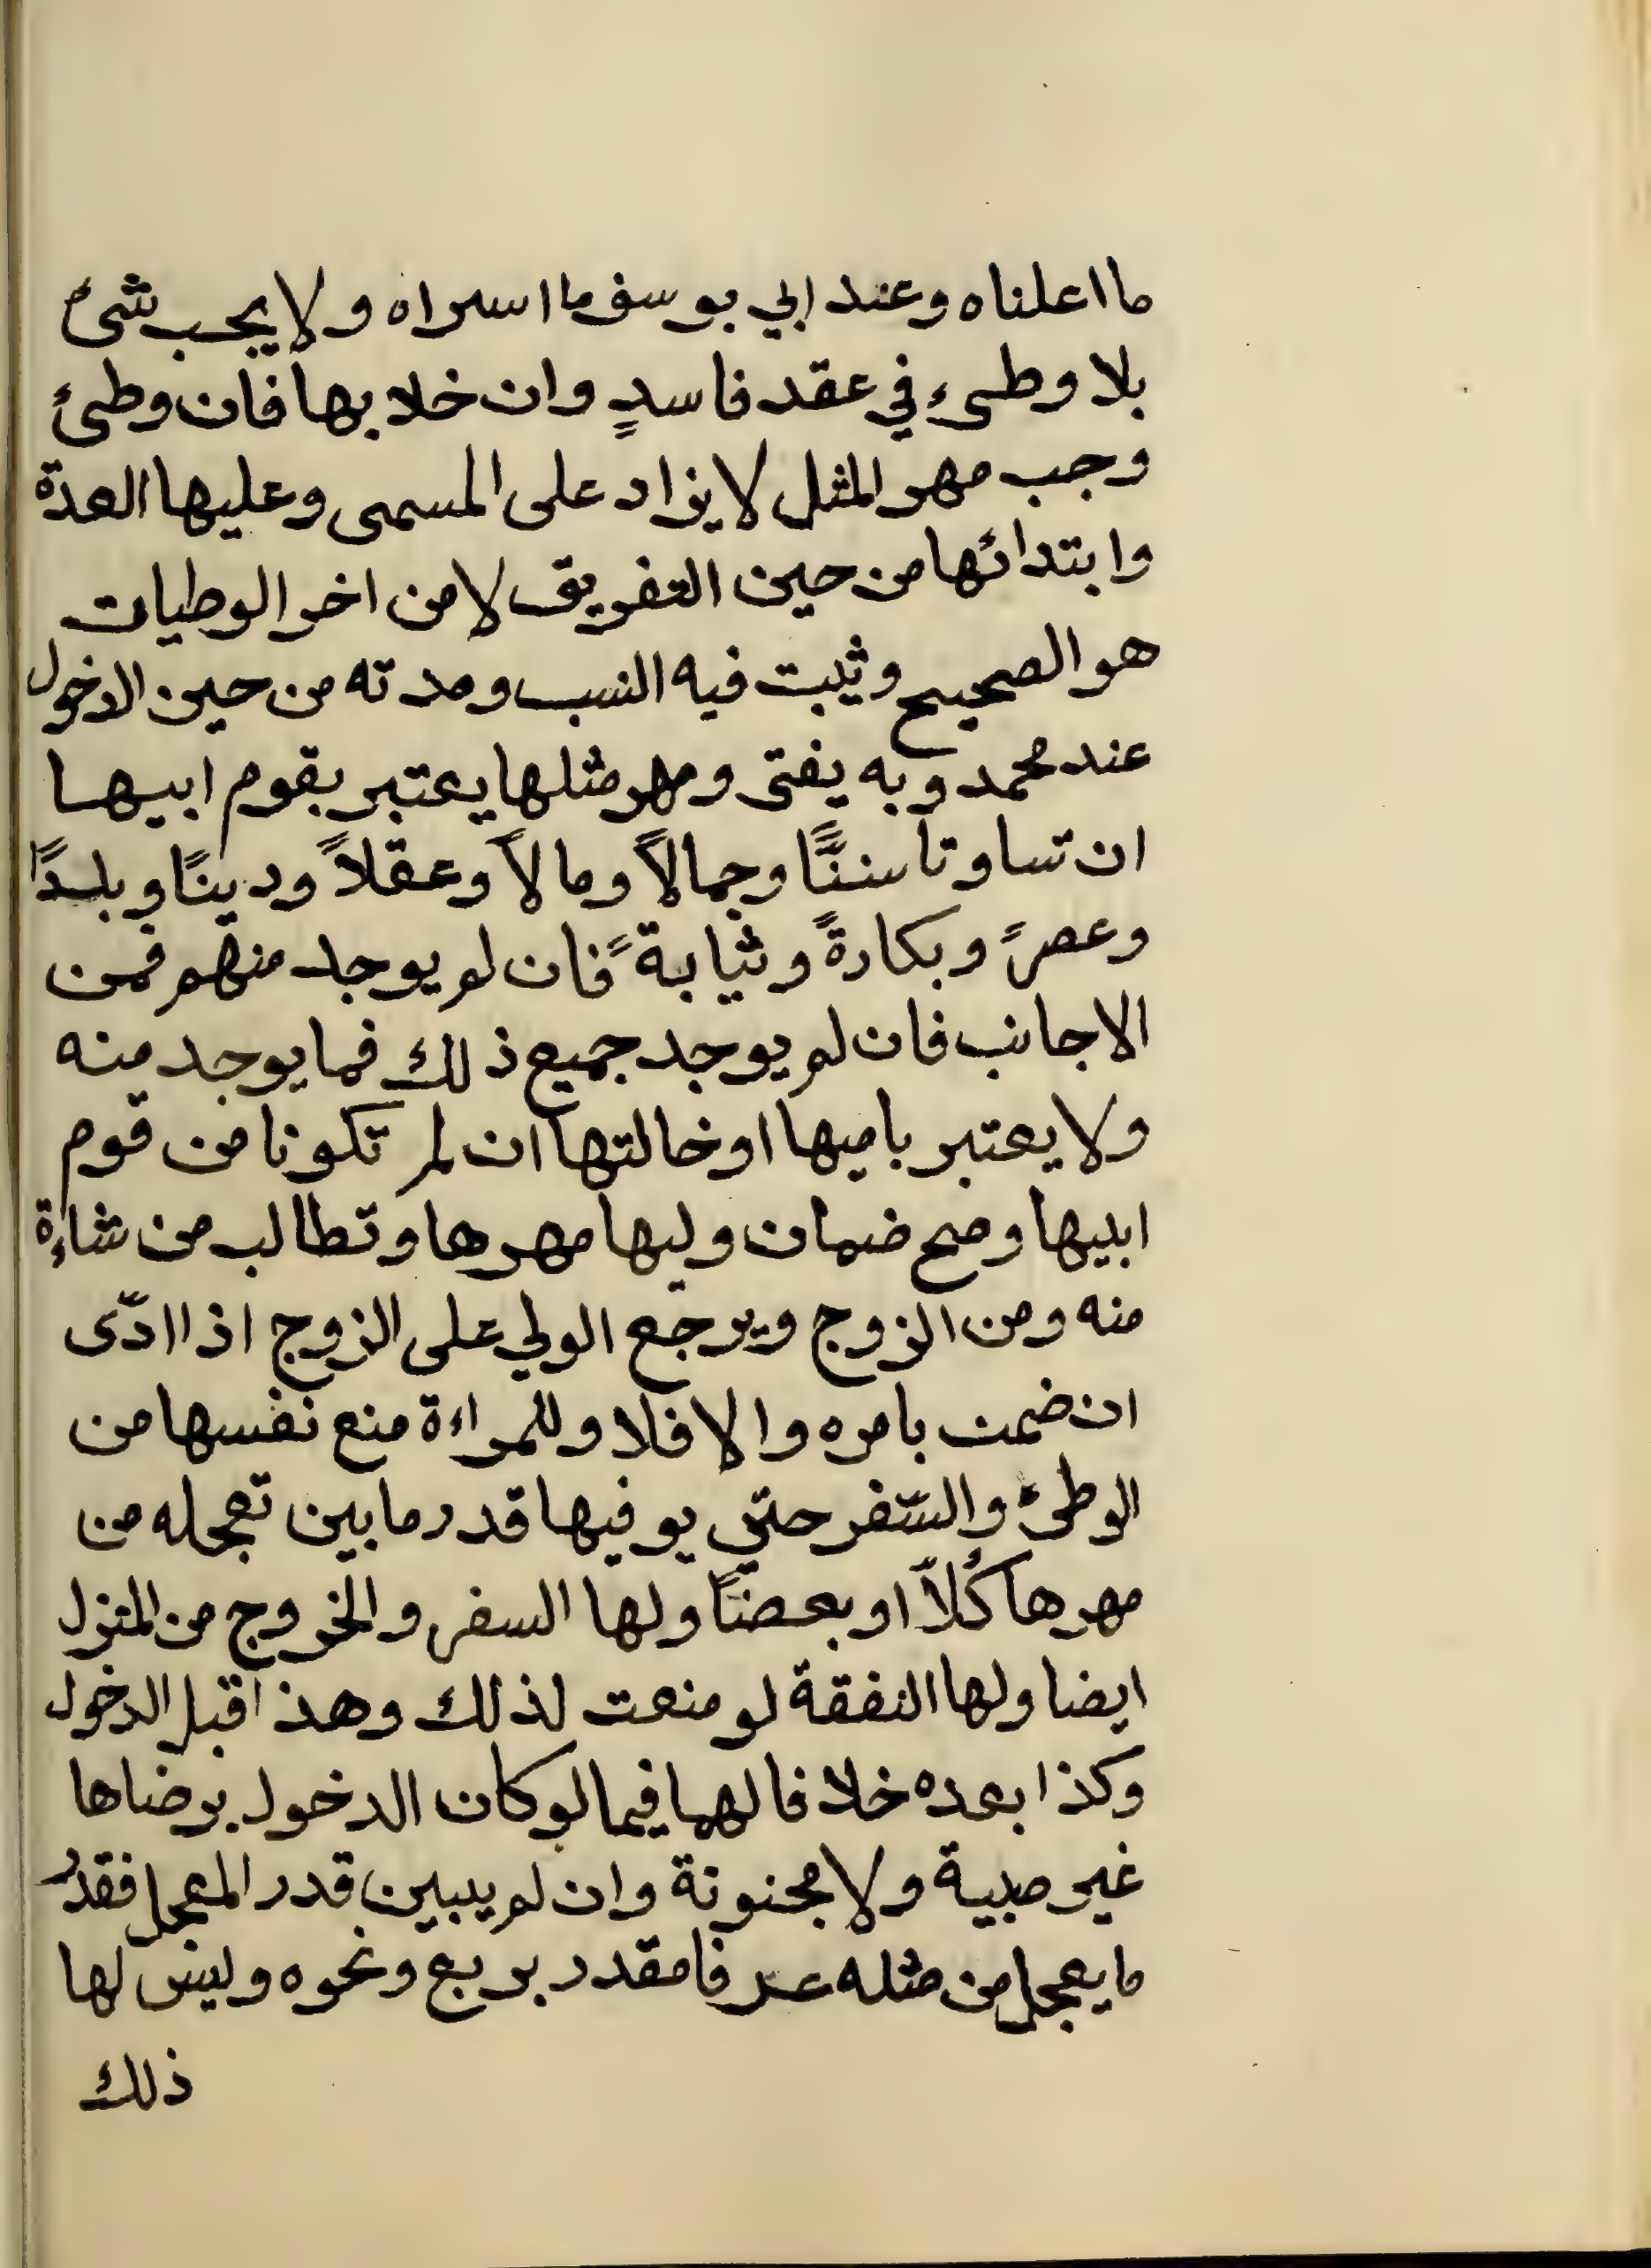 ما اعلناه وعند ابي يوسف ما اسراه ولا يجب شئ
بلا وطىء في عقد فاسدٍ وان خلا بها فان وطئ
وجب مهر المثل لا يزاد على المسمى وعليها العدة
وابتدائها من حين التفريق لا من اخر الوطيات
هو الصحيح وثيبت فيه النسب ومدته من حين الدخول
عند محمد وبه يفتى ومهر مثلها يعتبر بقوم ابيها
ان تساوتا سننًّا وجمالاً ومالاً وعقلاً ودينًا وبلدًا
وعصرً وبكارةً وثيابةً فان لم يوجد منهم فمن
الاجانب فان لم يوجد جميع ذلك فما يوجد منه
ولا يعتبر باميها او خالتها ان لم تكونا من قوم
ابيها وصح ضمان وليها مهرها وتطالب من شاءة
منه ومن الزوج ويرجع الولي على الزوج اذا ادّى
ان ضمت بامره والا فلا وللمراءة منع نفسها من
الوطئ والسّفر حتي يوفيها قدر ما بين تعجله من
مهرها كُلاّ او بعضاً ولها السفر والخروج من المنزل
ايضا ولها النفقة لو منعت لذلك وهذا قبل الدخول
وكذا بعده خلافا لهما فيما لو كان الدخول برضاها
غير صبية ولا مجنونة وان لم يبين قدر المعجل فقدُر
ما يعجل من مثله عرفا مقدر بربع ونحوه وليس لها
ذلك